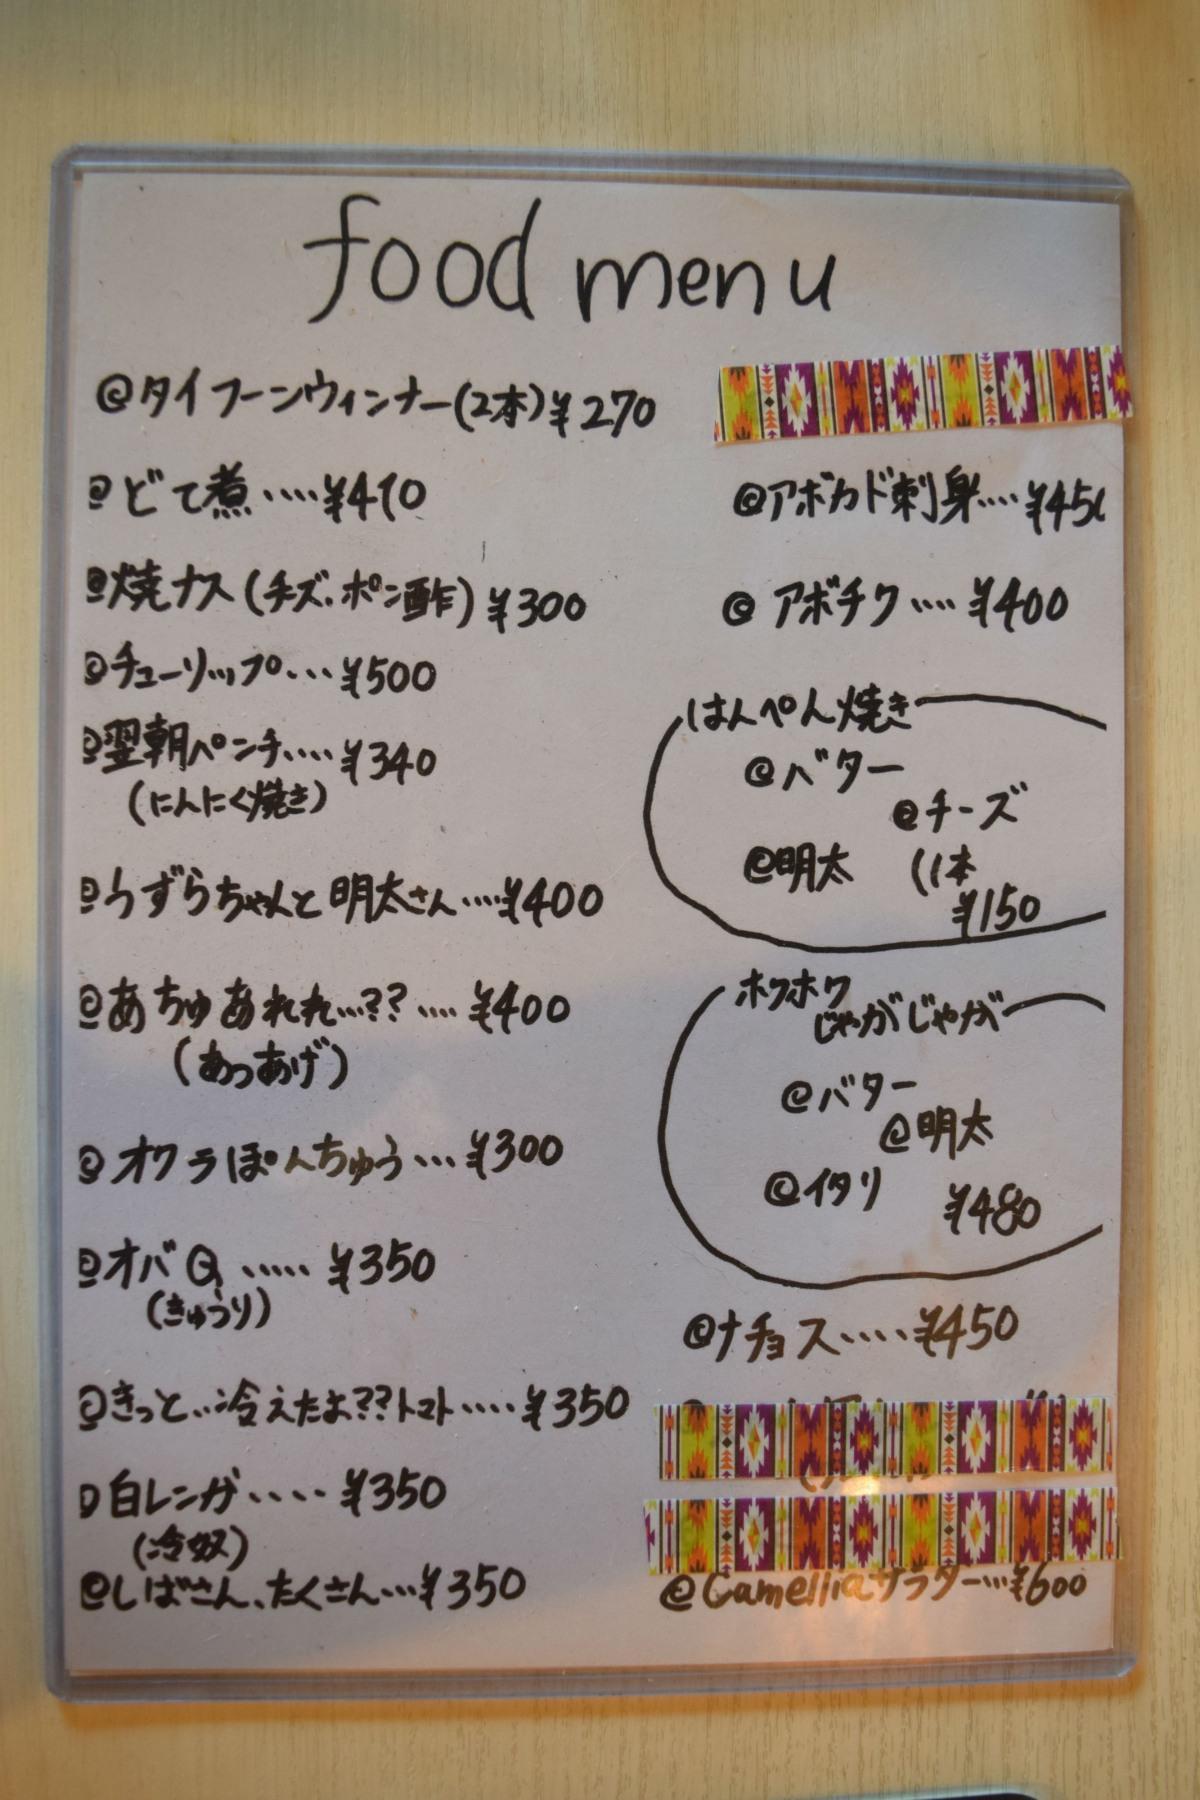 food menu
@タイフーンウィンナー(2本)¥270
@どて煮....¥410
@焼ナス(チーズ.ポン酢)¥300
@チューリップ...¥500
@翌朝ペンチ....¥340
(にんにく焼き)
@うずらちゃんと明太さん....¥400
@あちゅあれれ...??....¥400
(あつあげ)
@オクラぽんちゅう...¥300
@オバQ.....¥350
(きゅうり)
@きっと...冷えたよ??トマト....¥350
@白レンガ....¥350
(冷奴)
@しばさん、たくさん...¥350
@アボカド刺身....¥450
@アボチク....¥400
はんぺん焼き
@バター
@チーズ
@明太 (1本
¥150
ホクホク
じゃがじゃが
@バター
@明太
@イタリ ¥480
@ナチョス....¥450
@Camelliaサラダー...¥600